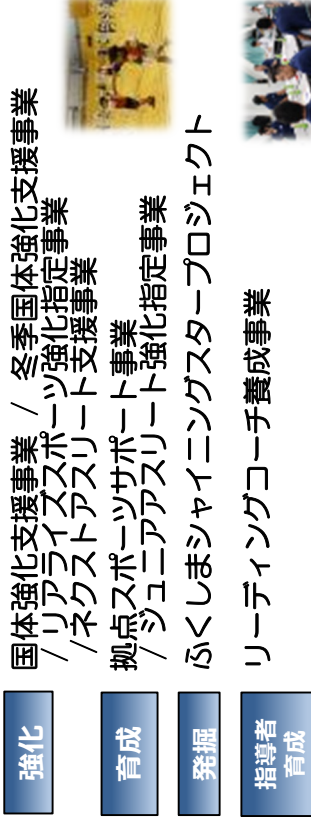 強化
国体強化支援事業 / 冬季国体強化支援事業
/ リアライズスポーツ強化指定事業
/ ネクストアスリート支援事業
育成
拠点スポーツサポート事業
/ ジュニアアスリート強化指定事業
発掘
ふくしまシャイニングスタープロジェクト
指導者
育成
リーディングコーチ養成事業